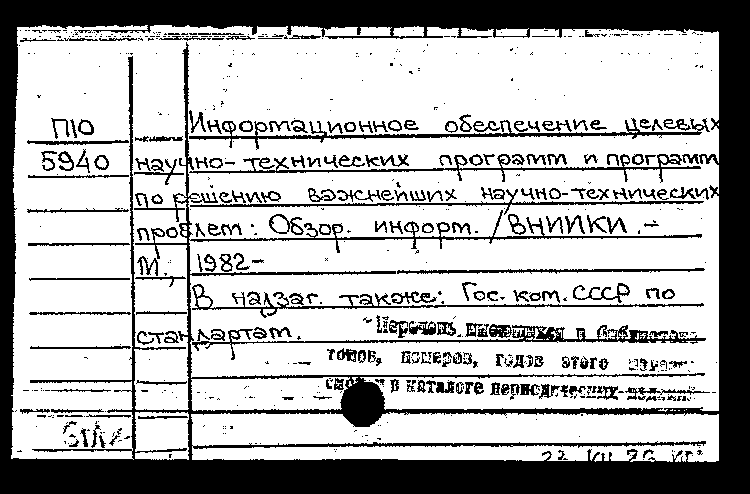 П10
5940
Информационное обеспечение целевых
научно-технических программ и программ
по решению важнейших научно-технических
проблем: Обзор. информ. / ВНИИКИ. –
М., 1982–
В надзаг. также: Гос. ком. СССР по
стандартам.
Перечень имеющихся в библиотеке
томов, номеров, годов этого издания
смотри в каталоге периодических изданий